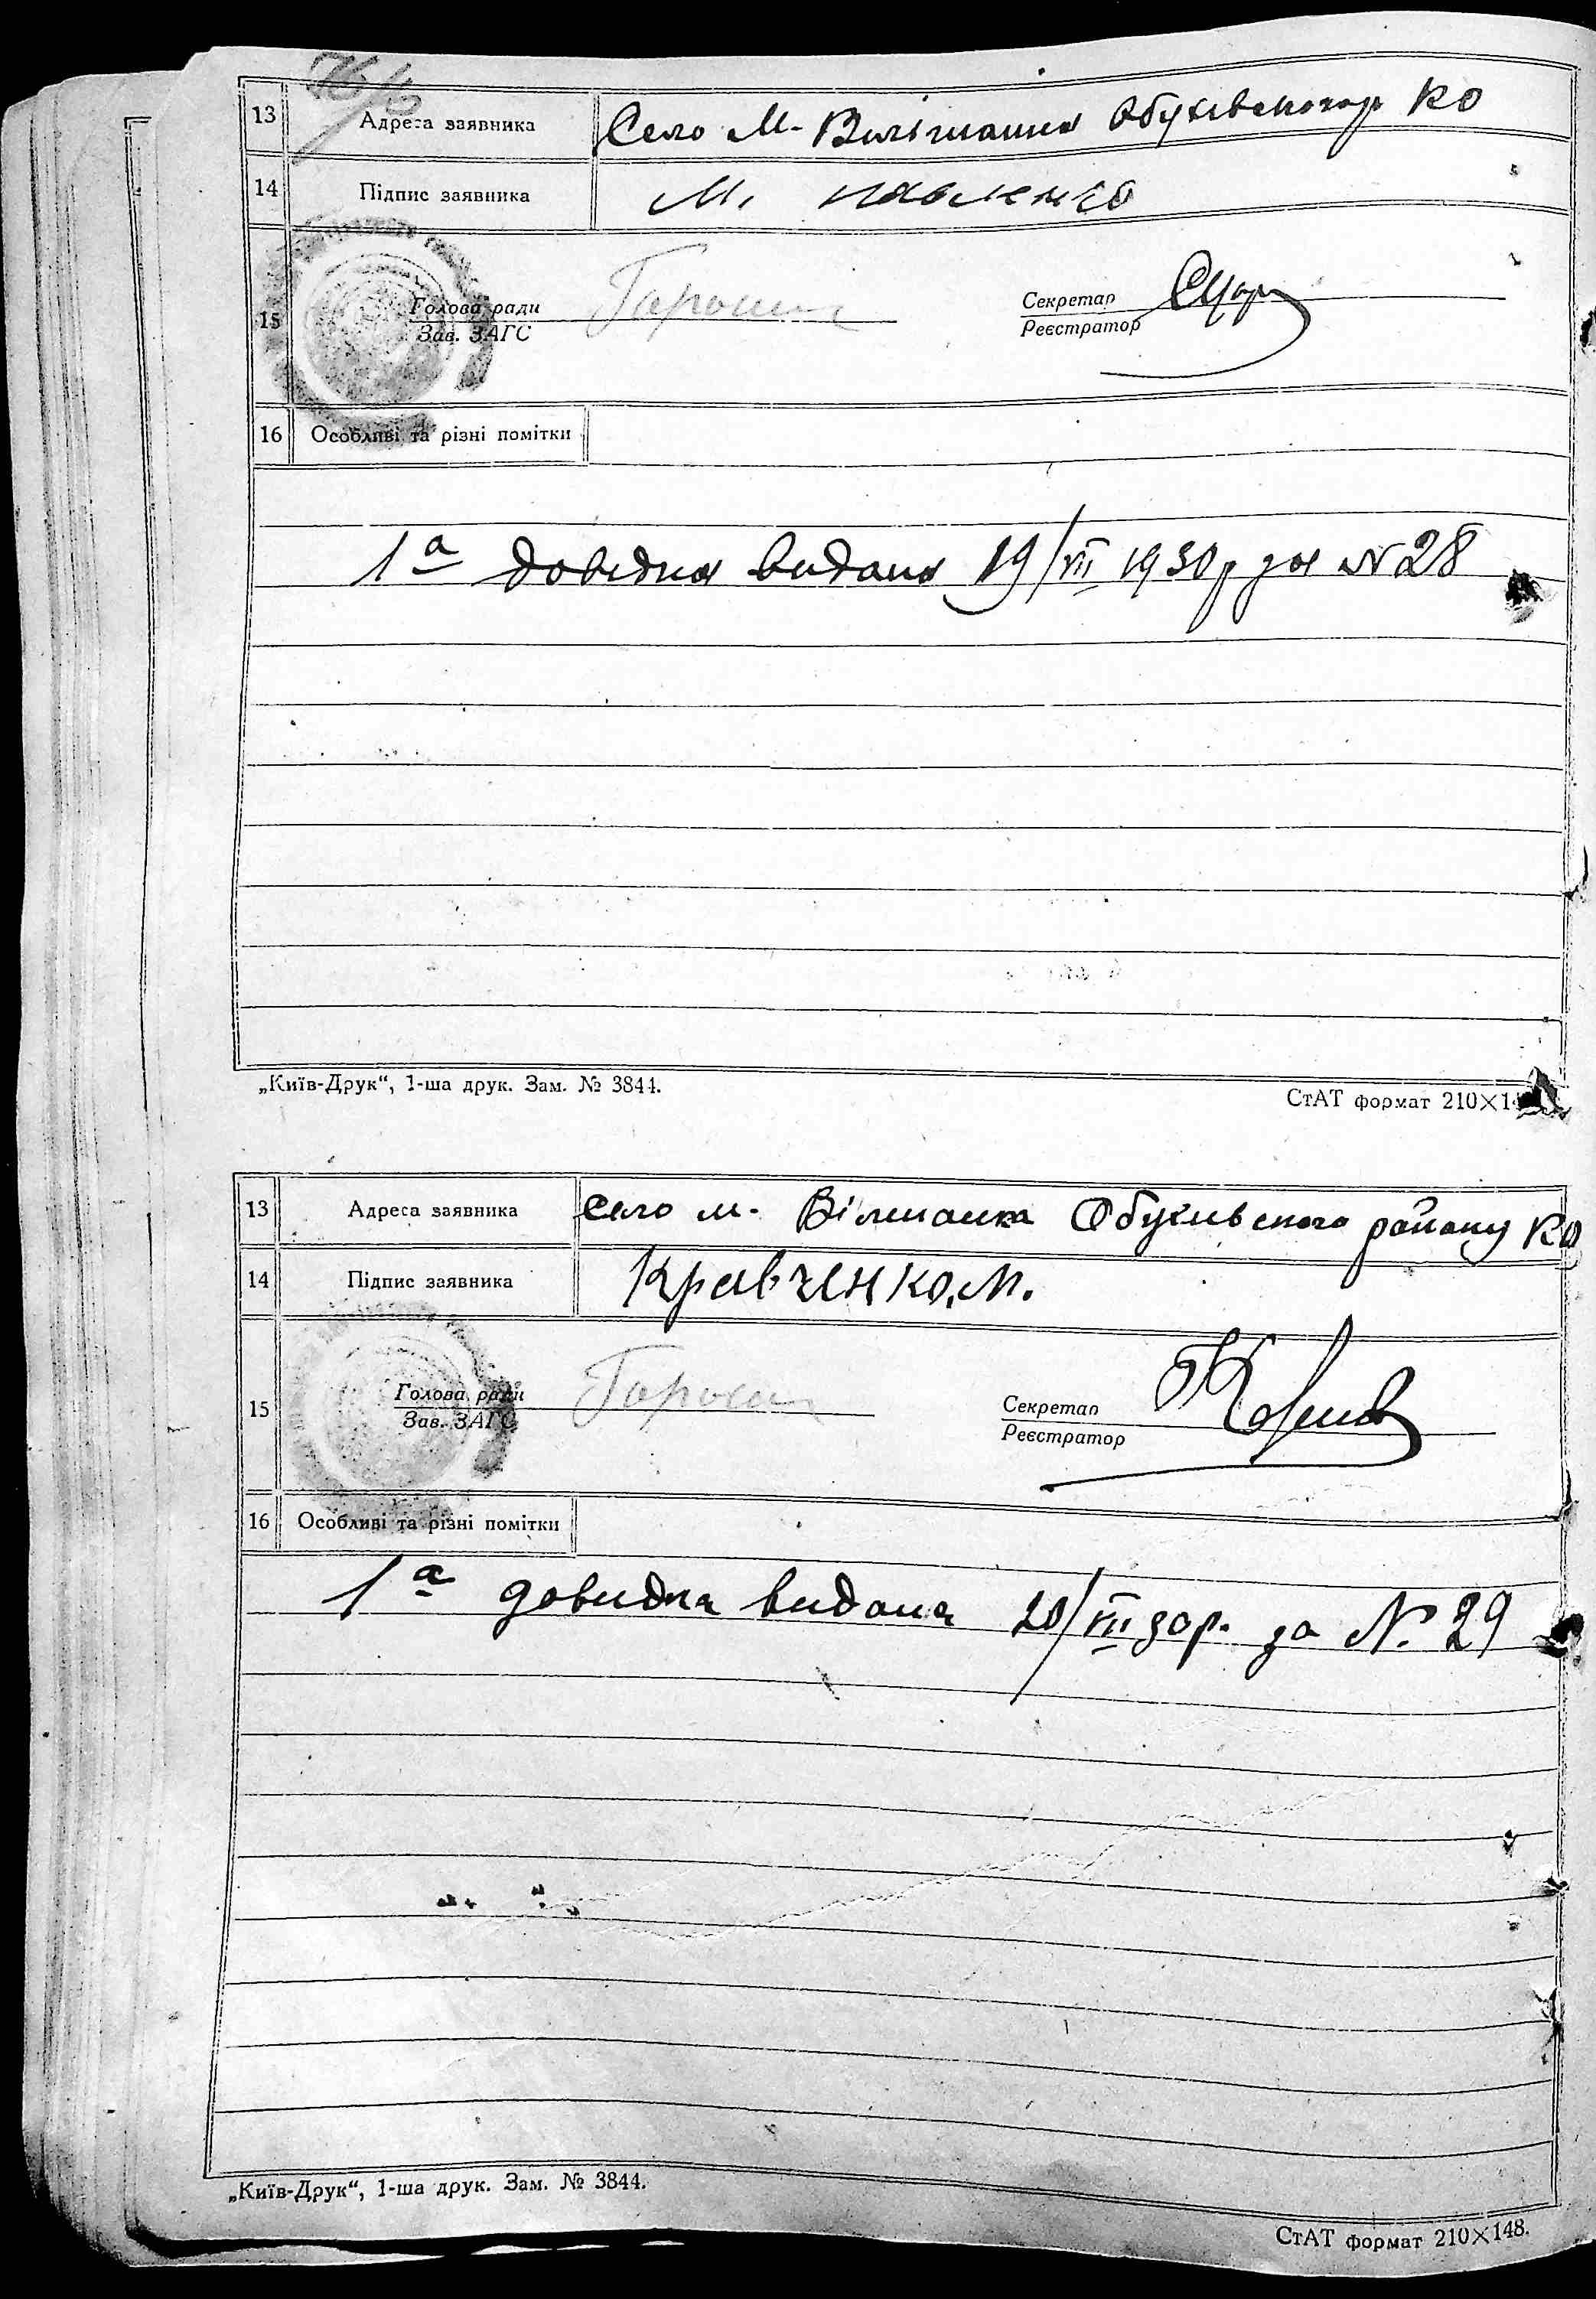 13 Адреса заявника Село М- Вільшанка Обухівського р КО
14 Підпис заявника М. Павленко
15 Голова ради Секретар
Зав. ЗАГС Реєстратор
16 Особливі та різні помітки
1а довідка видана 19/VII 1930 р за № 28
„Київ-Друк“, 1-ша друк. Зам. № 3844.
СтАТ формат 210×14
13 Адреса заявника Село м- Вілшанка Обухивського району КО
14 Підпис заявника Кравченко. М.
15 Голова ради Секретар
Зав. ЗАГС Реєстратор
16 Особливі та різні помітки
1а довидка видана 20/VII 30р. за №. 29
„Київ-Друк“, 1-ша друк. Зам. № 3844.
СтАТ формат 210×148.